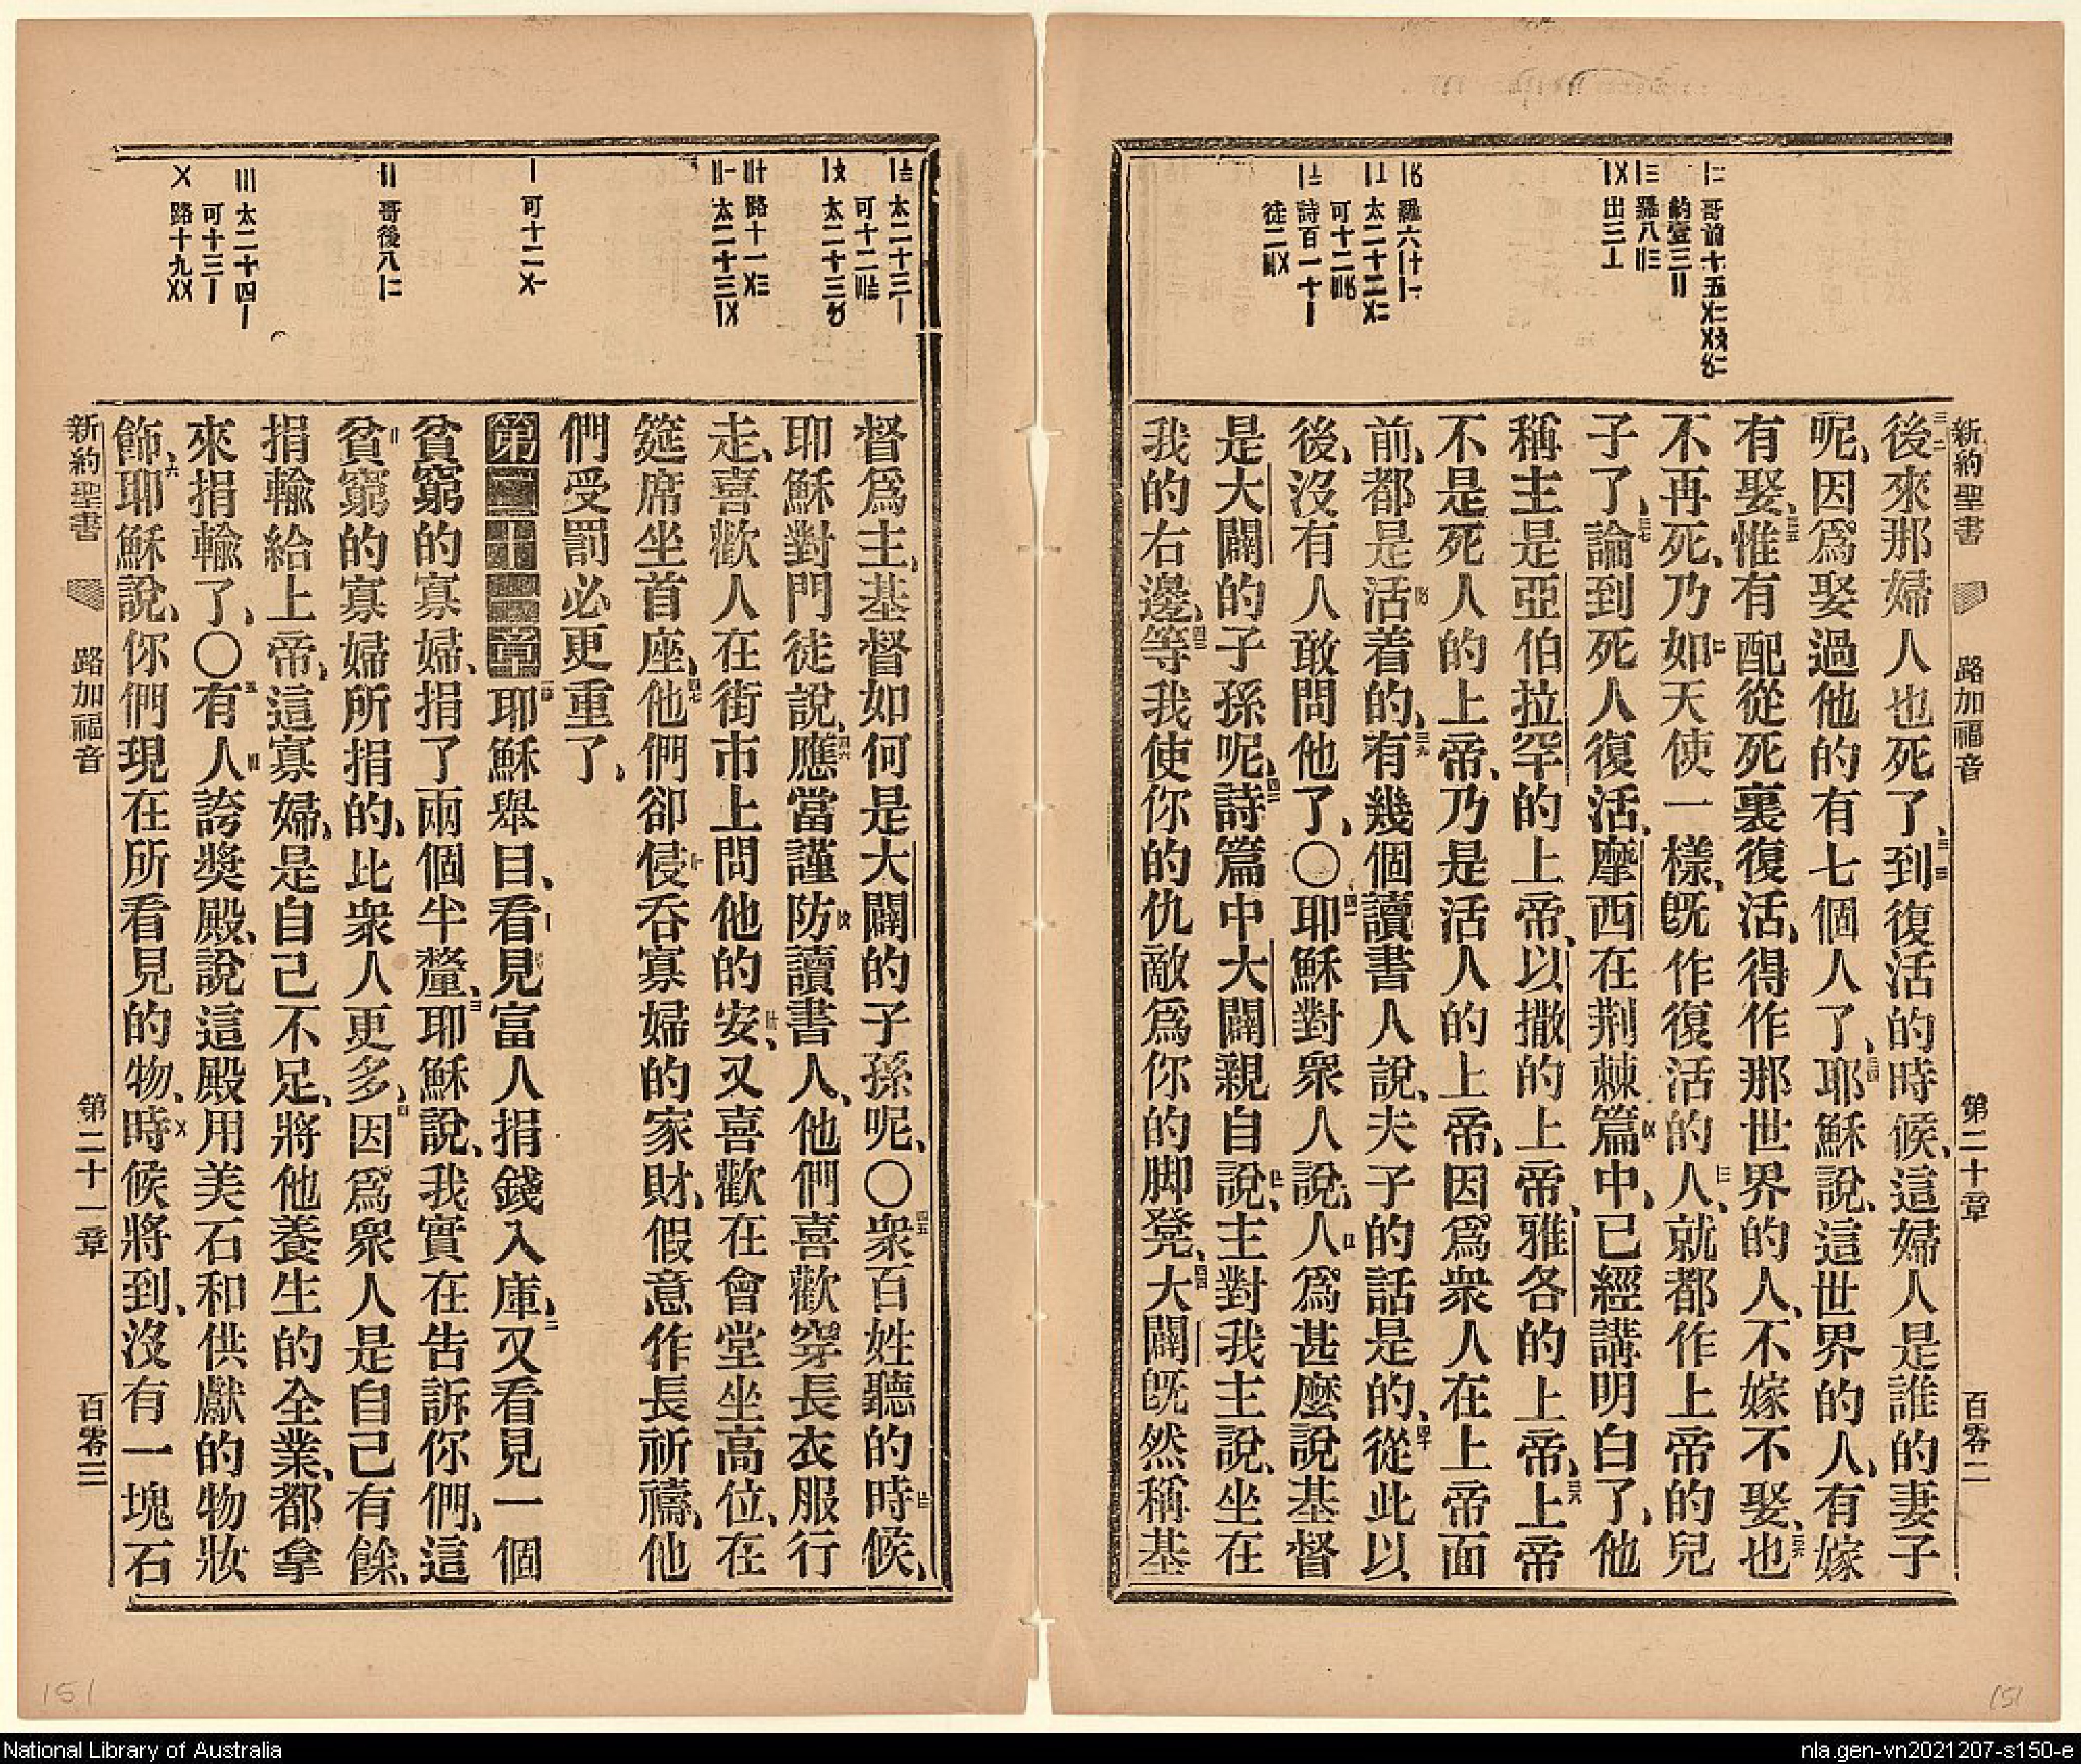 新約聖書 路加福音 第二十章 百零二
後來那婦人也死了、到復活的時候、這婦人是誰的妻子
呢、因爲娶過他的有七個人了、耶穌說、這世界的人、有嫁
有娶、惟有配從死裏復活、得作那世界的人、不嫁不娶、也
不再死、乃如天使一樣、旣作復活的人、就都作上帝的兒
子了、論到死人復活、摩西在荆棘篇中、已經講明白了、他
稱主是亞伯拉罕的上帝、以撒的上帝、雅各的上帝、上帝
不是死人的上帝、乃是活人的上帝、因爲衆人在上帝面
前、都是活着的、有幾個讀書人說、夫子的話是的、從此以
後、沒有人敢問他了、〇耶穌對衆人說、人爲甚麼說基督
是大闢的子孫呢、詩篇中大闢親自說、主對我主說、坐在
我的右邊、等我使你的仇敵爲你的脚凳、大闢旣然稱基
督爲主、基督如何是大闢的子孫呢、〇衆百姓聽的時候、
耶穌對門徒說、應當謹防讀書人、他們喜歡穿長衣服行
走、喜歡人在街市上問他的安、又喜歡在會堂坐高位、在
筵席坐首座、他們卻侵吞寡婦的家財、假意作長祈禱、他
們受罰必更重了、
第二十一章 耶穌舉目、看見富人捐錢入庫、又看見一個
貧窮的寡婦、捐了兩個半釐、耶穌說、我實在告訴你們、這
貧窮的寡婦所捐的、比衆人更多、因爲衆人是自己有餘、
捐輸給上帝、這寡婦、是自己不足、將他養生的全業、都拿
來捐輸了、〇有人誇獎殿、說這殿用美石和供獻的物妝
飾、耶穌說、你們現在所看見的物、時候將到、沒有一塊石
新約聖書 路加福音 第二十一章 百零三
151
151
National Library of Australia
nla.gen-vn2021207-s150-e